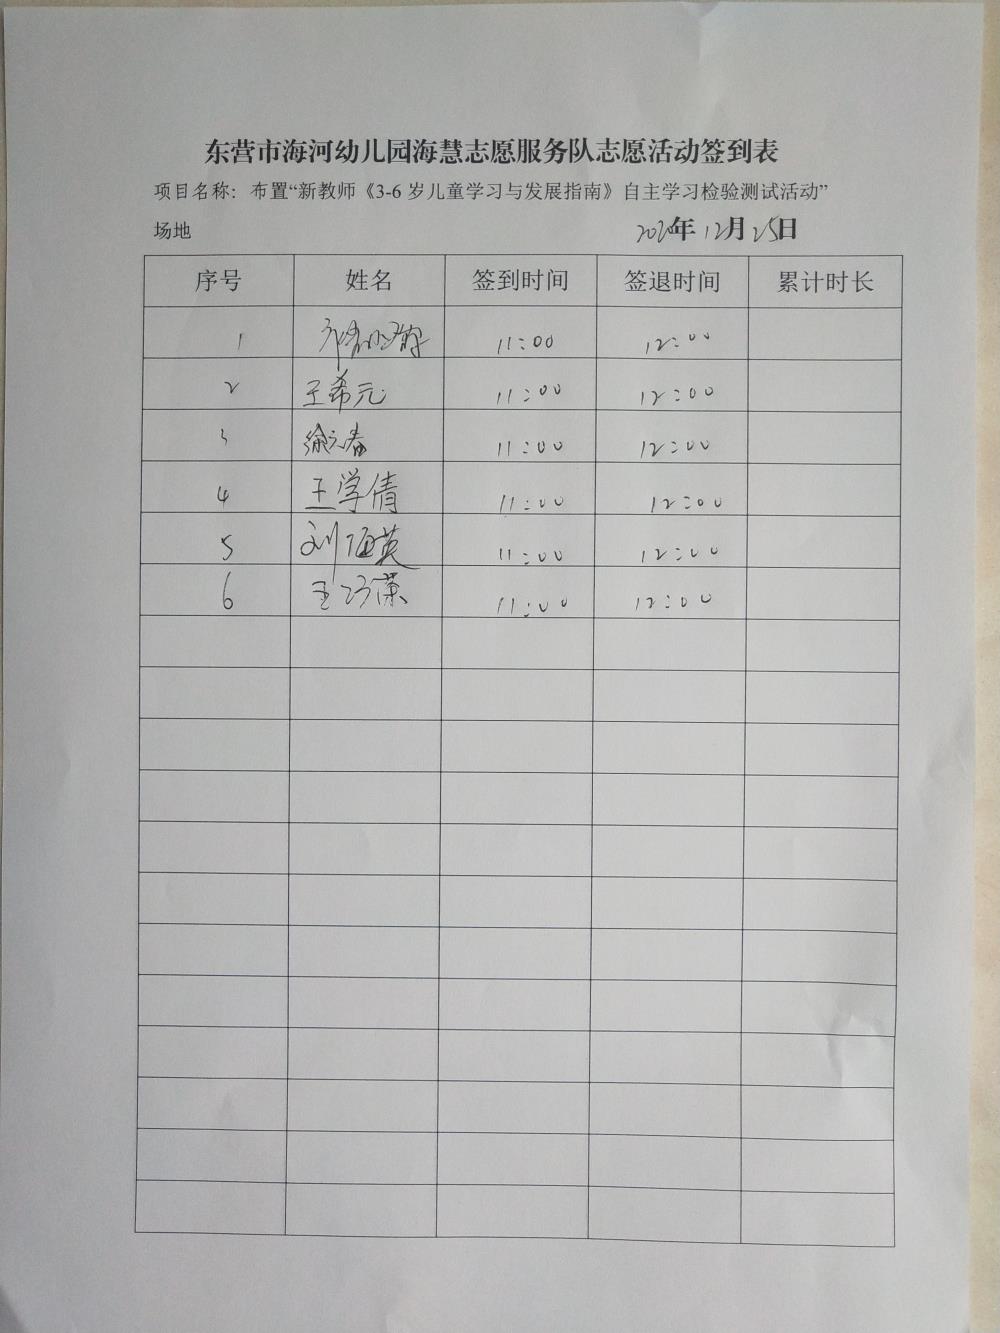 东营市海河幼儿园海慧志愿服务队志愿活动签到表
项目名称：布置“新教师《3-6 岁儿童学习与发展指南》自主学习检验测试活动”
场地 2020年 12月 25日
序号 姓名 签到时间 签退时间 累计时长
1 11:00 12:00
2 王希元 11:00 12:00
3 徐元春 11:00 12:00
4 王学倩 11:00 12:00
5 刘海英 11:00 12:00
6 王巧荣 11:00 12:00